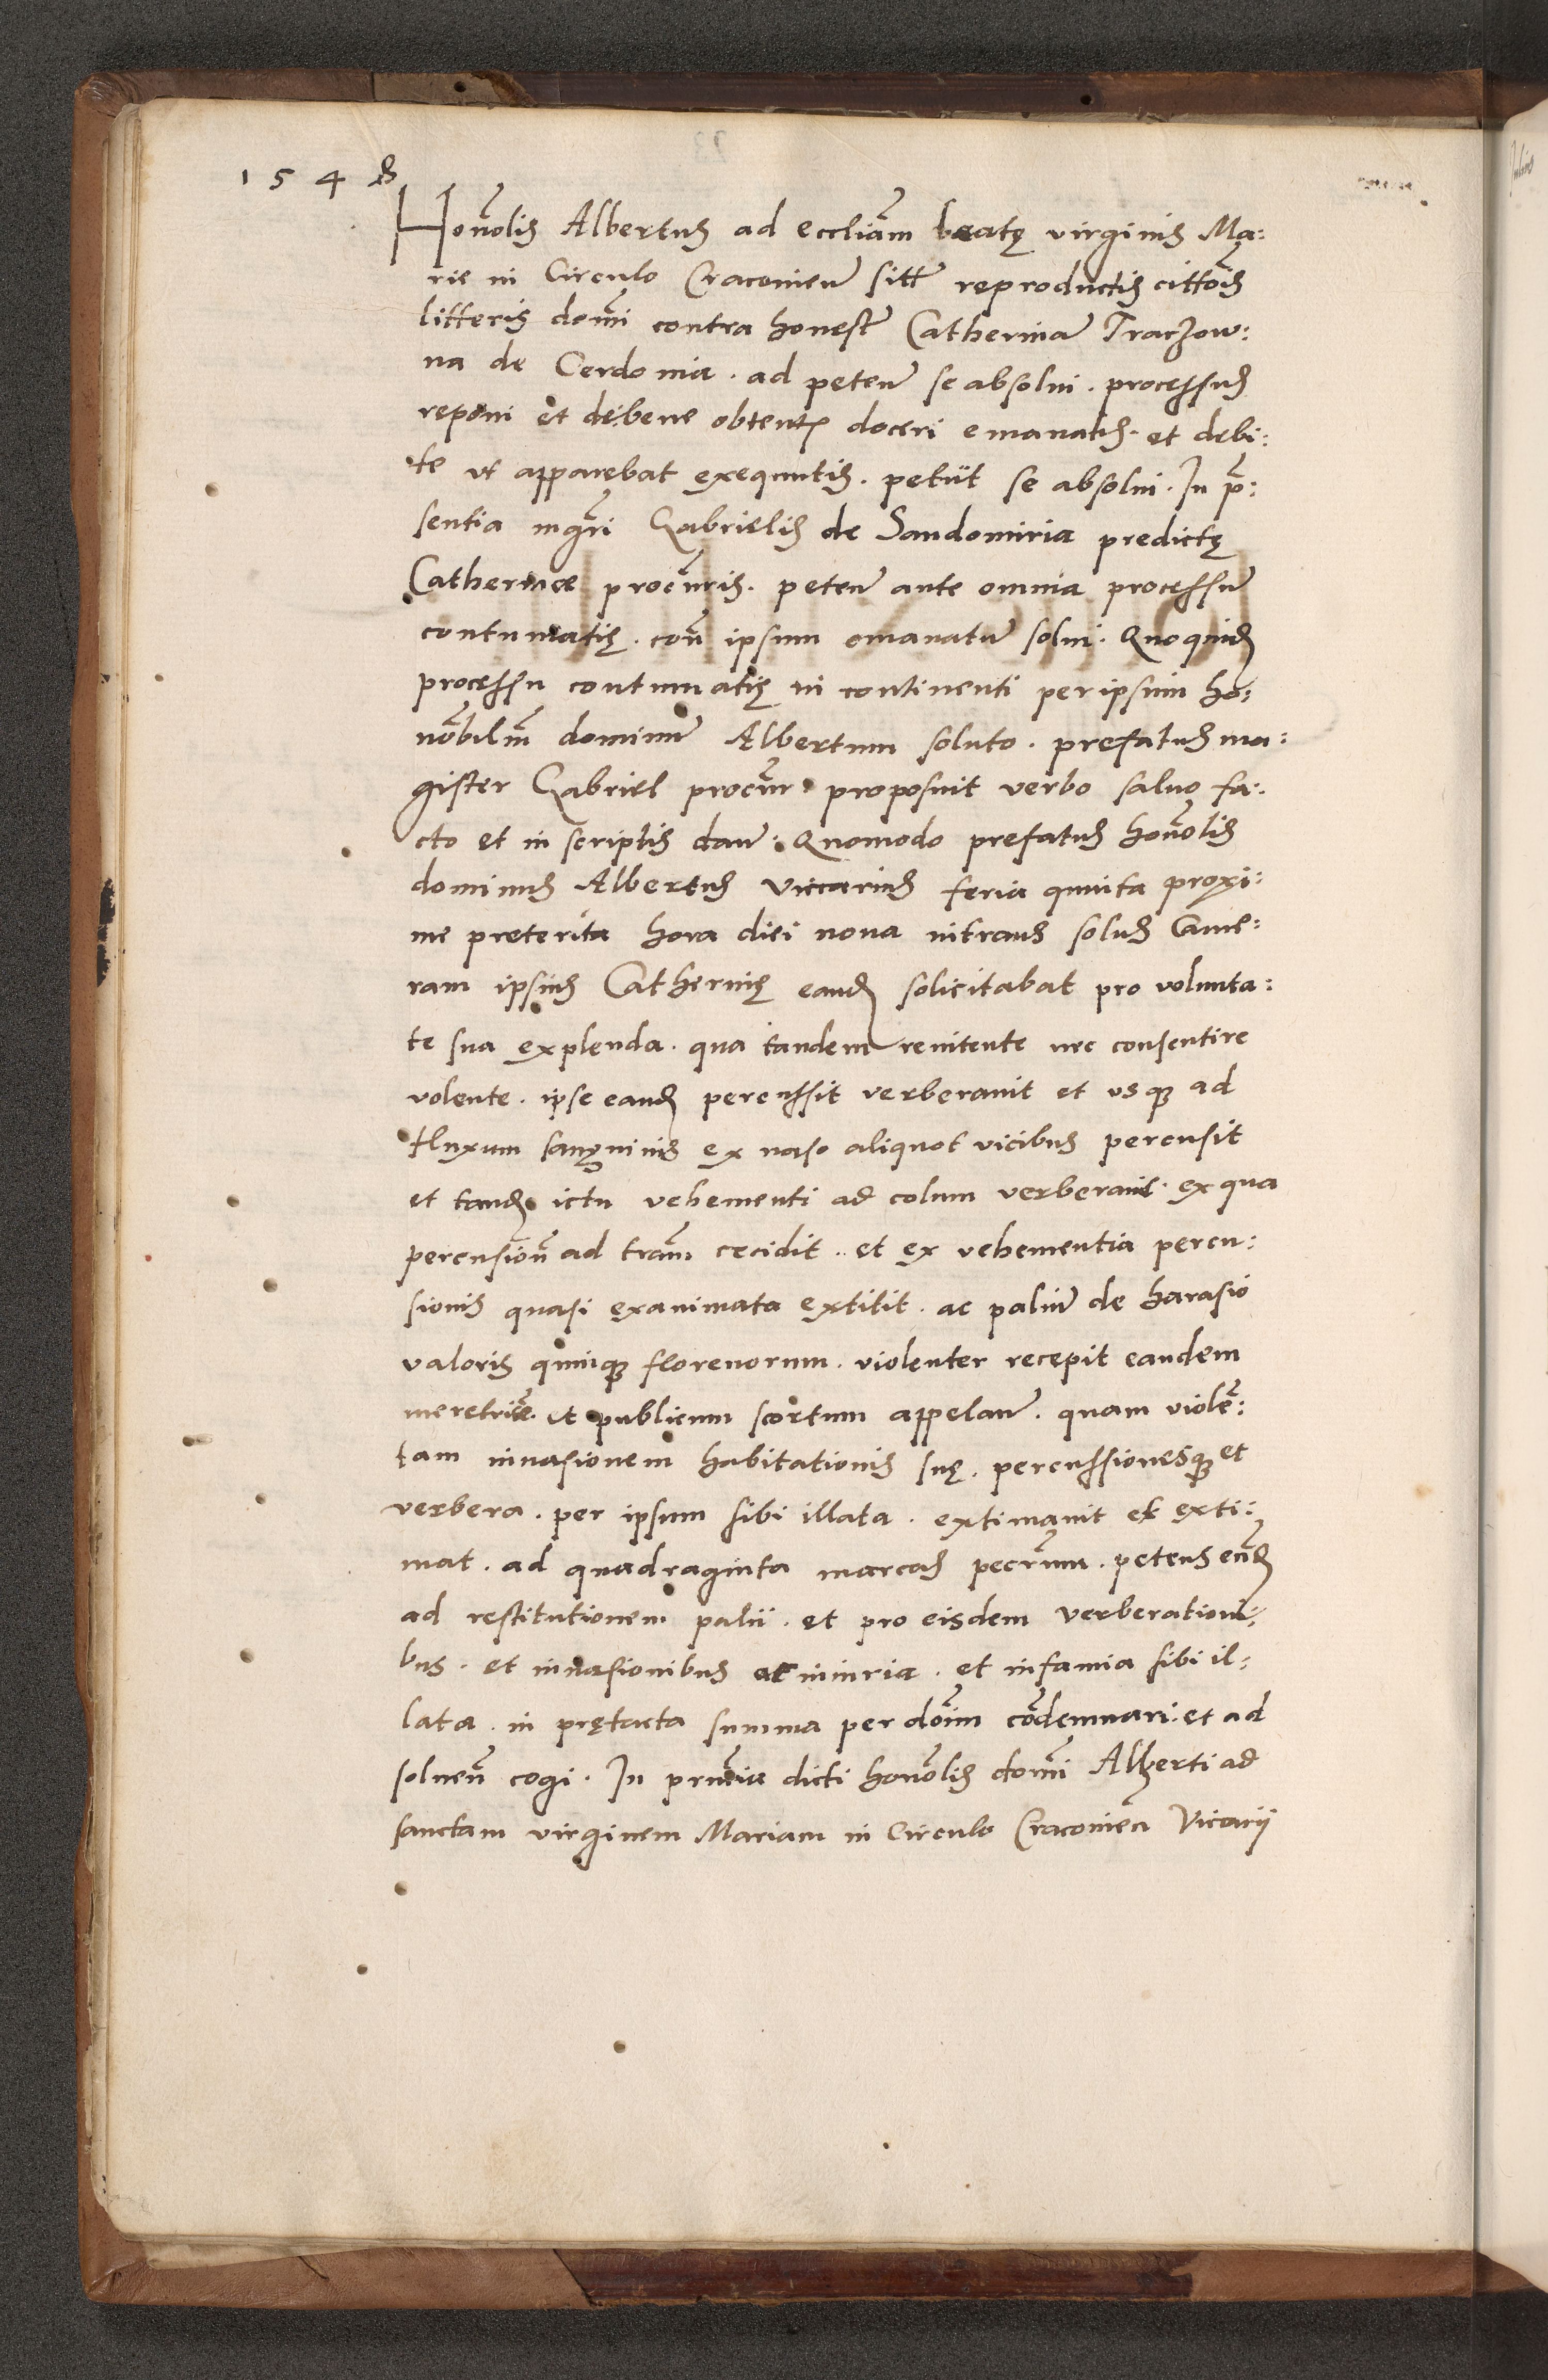 1548
Honolis Albertus ad eccliam beatę virginis Ma:
rie in Circulo Cracouien sitt reproductis cittois
litteris domi contra honest Catherina Traczow:
na de Cerdonia. ad peten se absolui. processus
reponi et debene obtentus doceri emanatus. et debi:
te ut apparebat exequutis. petiit se absolui. In p:
sentia mgri Gabrielis de Sandomiria predictę
Catherinae procuris. peten ante omnia processum
contumatię. con ipsum emanatum solui. Quoquid
processu contumatię in continenti per ipsum ho:
norabilem dominum Albertum soluto. prefatus ma:
gister Gabriel procur proposuit verbo saluo fa:
cto et in scriptis dan: Quomodo prefatus honolis
dominus Albertus Viccarius feria quinta proxi:
me preterita hora diei nona intrans solus Came:
ram ipsius Catherinę eand solicitabat pro volunta:
te sua explenda. qua tandem renitente nec consentire
volente. ipse eand percussit verberauit et usque ad
fluxum sanguinis ex naso aliquot vicibus percusit
et tand ictu vehementi ad colum verberauit. ex qua
percusion ad tram cecidit. et ex vehementia percu:
sionis quasi exanimata extitit. ac palium de harasio
valoris quinque florenorum. violenter recepit eandem
meretrice. et publicum scortum appelan. quam violen:
tam inuasionem habitationis suę. percussionesque et
verbera. per ipsum sibi illata. extimauit et exti:
mat. ad quadraginta marcas pecrum. petens eund
ad restitutionem palii. et pro eisdem verberationi:
bus. et inuasionibus ac iniuria. et infamia sibi il:
lata. in prętacta summa per doim condemnari. et ad
soluen cogi. In prntia dicti honolis domi Alberti ad
sanctam virginem Mariam in Circulo Cracouien Vicarij